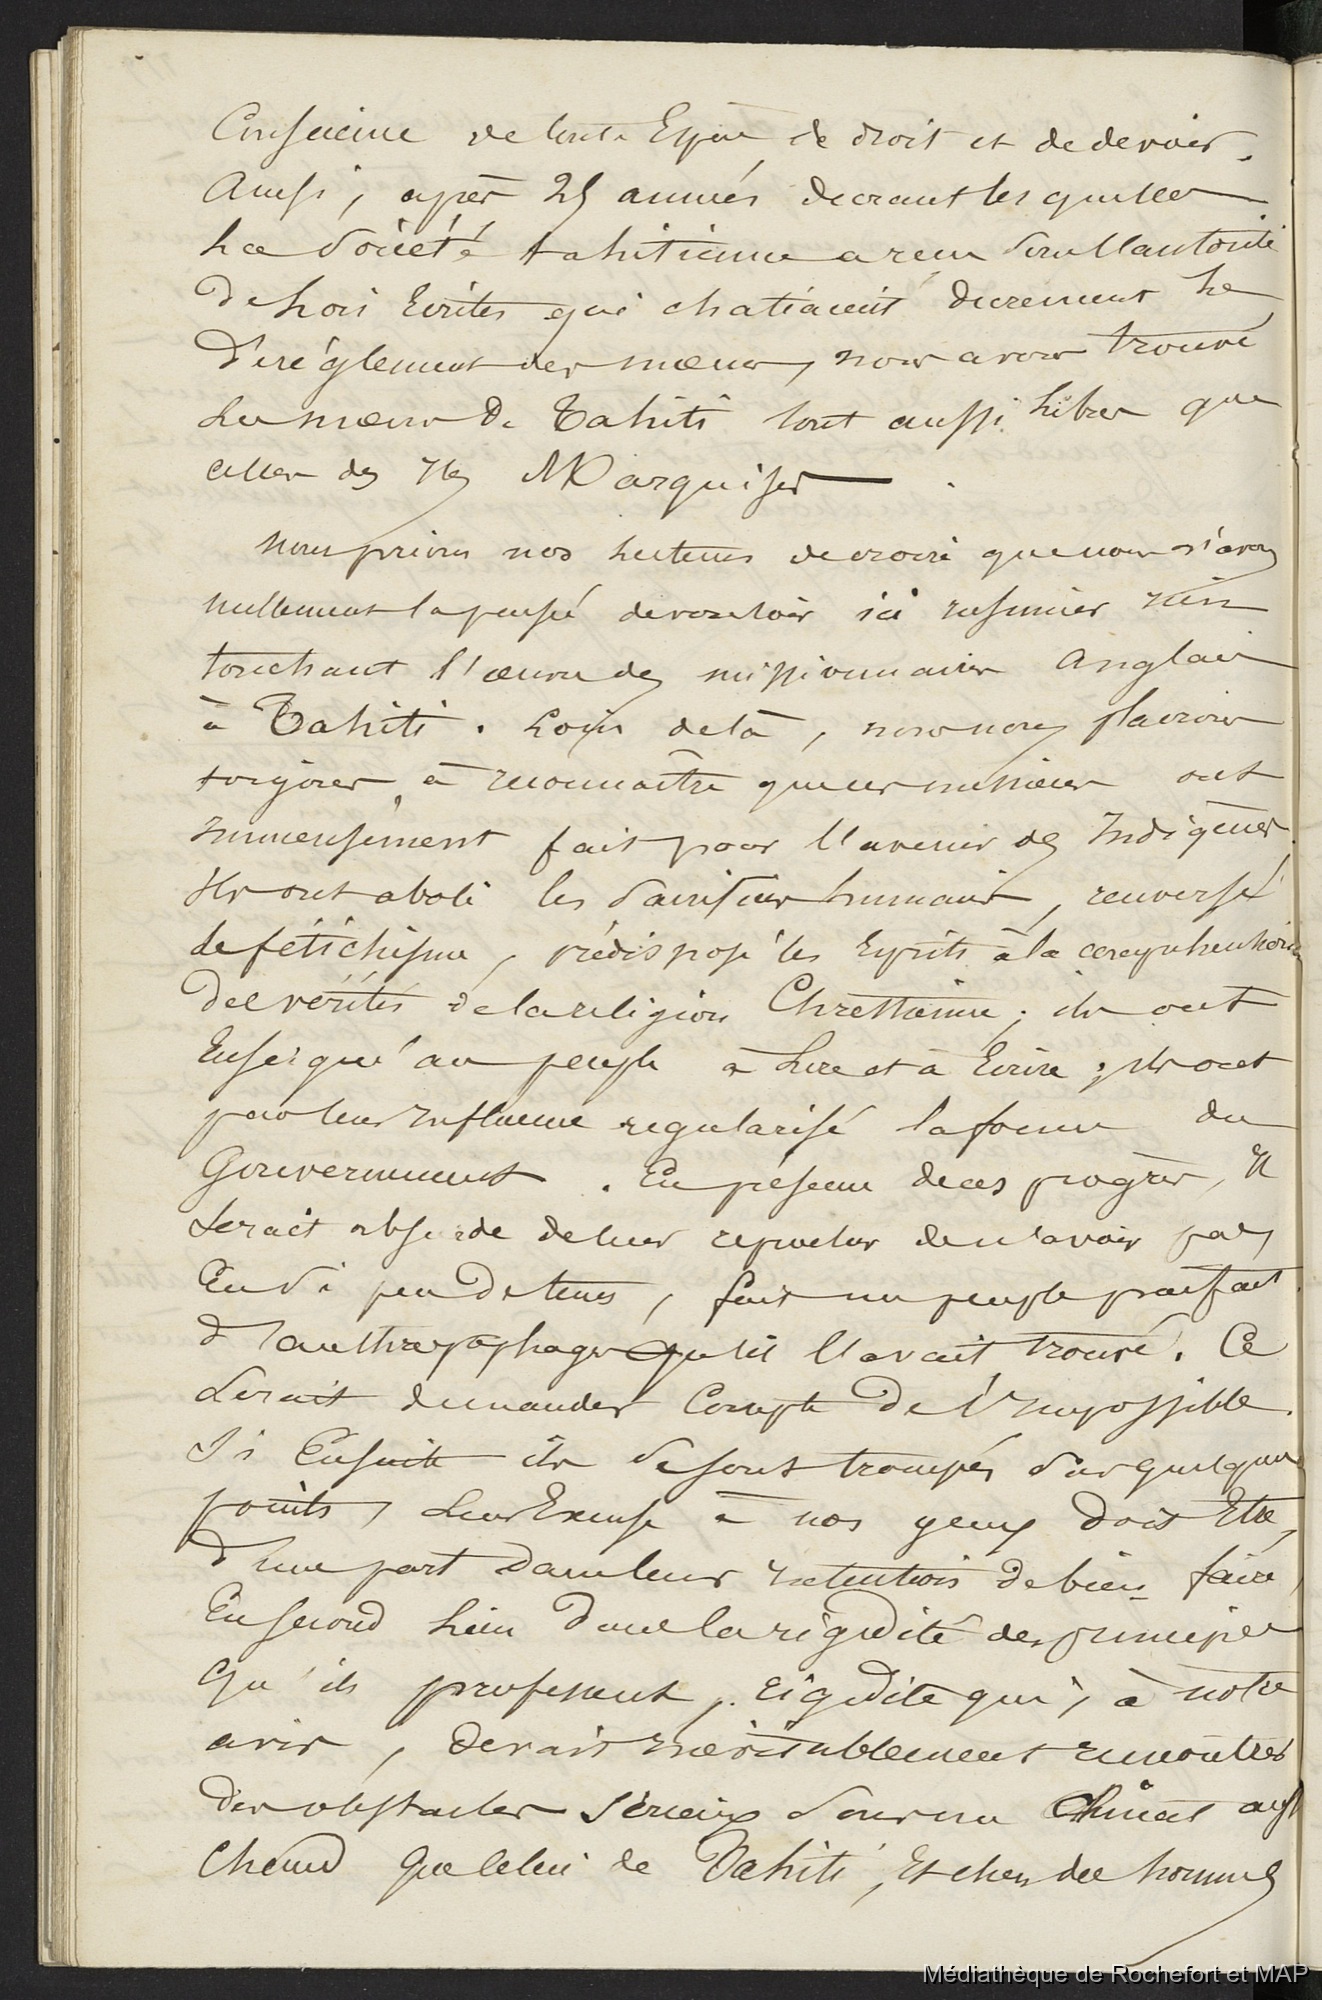 Conscience de toute Espèce de droit et de devoir.
Aussi, après 25 années durant lesquelles
La Société tahitienne a vécu sous l'autorité
De Lois Ecrites qui chatiaient durement Le
Déréglement des mœurs, nous avons trouvé
Les mœurs De Tahiti tout aussi Libres que
celles des Iles Marquises.
Nous prions nos Lecteurs de croire que nous n'avons
nullement la pensée de vouloir ici résumer rien
touchant l'œuvre des missionnaires Anglais
à Tahiti. Loin de là, nous nous plairons
toujours à reconnaître que ces messieurs ont
Immensément fait pour l'avenir des Indigènes
Ils ont aboli les Sacrifices humains, renversé
le fétichisme, prédisposé les Esprits à la compréhension
Des vérités de la religion Chrettienne; ils ont
Enseigné au peuple à Lire et à Ecrire; ils ont
par leur Influence regularisé la forme du
Gouvernement. En présence de ces progrès, Il
Serait absurde de leur reprocher de n'avoir pas
En Si peu De tems, fait un peuple parfait
d'anthropophages qu'il l'avait trouvé. Ce
Serait demander Compte De l'Impossible.
Si Ensuite ils se sont trompés sur quelques
points, Leur Excuse à nos yeux Doit Etre,
d'une part Dans leur Intention De bien faire,
En Second Lieu Dans la rigidité des principes
Qu'ils professent, rigidité qui, à notre
avis, Devait Inévitablement rencontrer
Des obstacles Sérieux Sous un Climat aussi
Chaud Que celui de Tahiti, Et chez des hommes
Médiathèque de Rochefort et MAP